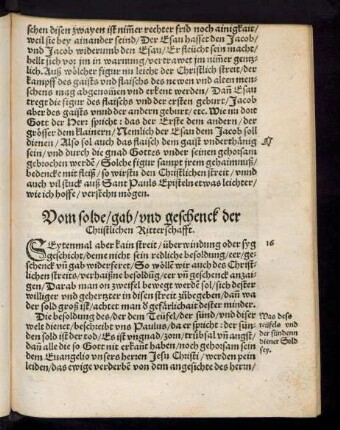 schen disen zwayen ist nim̃er rechter frid noch ainigkait/
weil sie bey ainander seind/ Der Esau hasset den Jacob/
vnd Jacob widerumb den Esau/ Er fleücht sein macht/
hellt sich vor jm in warnung/ vertrawet jm nim̃er gentz-
lich. Auß wölcher figur nu leicht der Christlich streit/ der
kampff des gaysts vnd flaischs des newen vnd alten men-
schens mag abgenom̃en vnd erkent werden/ Dañ Esau
tregt die figur des flaischs vnd der ersten geburt/ Jacob
aber des gaists vnnd der andern geburt/ etc. Wie nu dort
Gott der Herr spricht: das der Erste dem andern/ der
grösser dem klainern/ Nemlich der Esau dem Jacob soll
dienen/ Also sol auch das flaisch dem gaist vnderthänig
sein/ vnd durch die gnad Gottes vnder seinen gehorsam
gebrochen werdẽ/ Solche figur sampt jrem gehaimnuß/
bedencke mit fleiß/ so wirstu den Christlichen streit/ vnnd
auch vil stuck auß Sant Pauls Episteln etwas leichter/
wie ich hoffe/ verstehn mögen.
Vom solde/ gab/ vnd geschenck der
Christlichen Ritterschafft.
SEytenmal aber kain streit/ überwindung oder syg
geschicht/ deme nicht sein redliche besoldung/ eer/ ge-
schenck vñ gab widerferet/ So wöllẽ wir auch des Christ-
lichen streits/ verhaißne besoldũg/ eer vñ geschenck anzai-
gen/ Darab man on zweifel bewegt werdẽ sol/ sich dester
williger vnd gehertzter in disen streit zůbegebẽn/ dañ wa
der sold groß ist/ achtet man d gefärlichait dester minder.
Die besoldung des/ der dem Teüfel/ der sünd/ vnd diser
welt dienet/ beschreibt vns Paulus/ da er spricht: der sün-
den sold ist der tod/ Es ist vngnad/ zorn/ trübsal vñ angst/
dañ alle die so Gott nit erkañt haben/ noch gehorsam sein
dem Euangelio vnsers herren Jesu Christi/ werden pein
leiden/ das ewige verderbẽ von dem angesichte des herrn/
16
Was dess
teüfels vnd
der sündenn
diener Sold
sey.